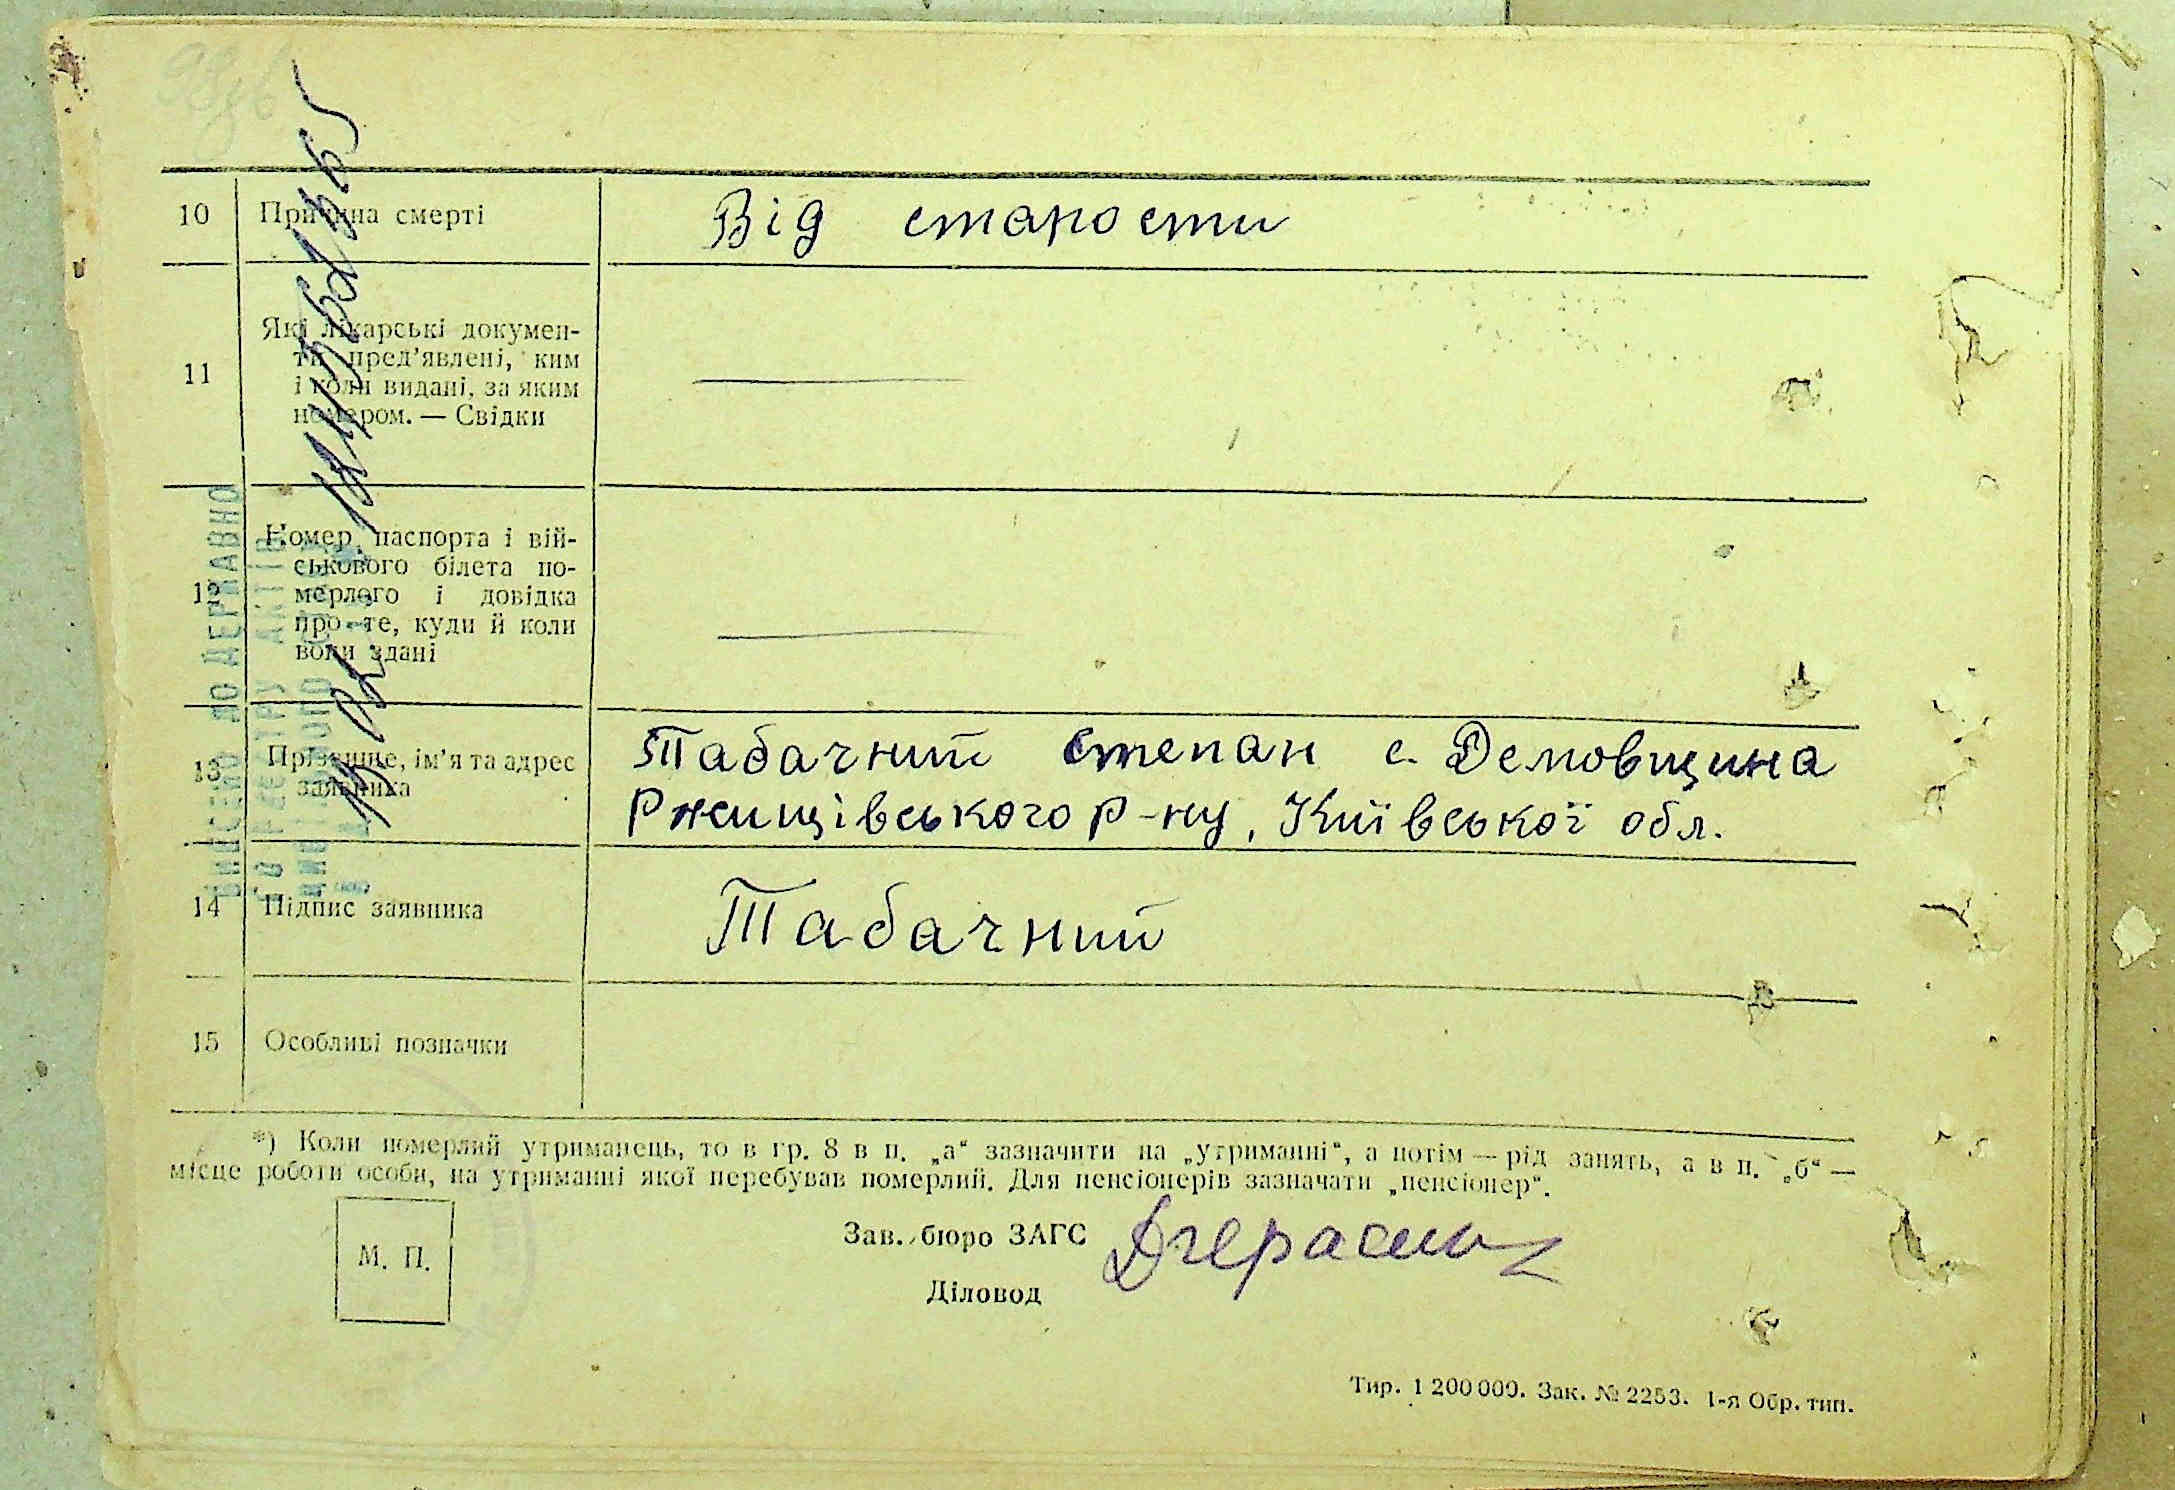 10 Причина смерті Від старости
11 Які лікарські докумен-
ти пред’явлені, ким
і коли видані, за яким
номером. — Свідки
12 Номер паспорта і вій-
ськового білета по-
мерлого і довідка
про те, куди й коли
вони здані
13 Прізвище, ім’я та адрес
заявника
Табачний Степан с. Демовщина
Ржищівського р-ну, Київської обл.
14 Підпис заявника Табачний
15 Особливі позначки
*) Коли померлий утриманець, то в гр. 8 в п. „а“ зазначити на „утриманні“, а потім — рід занять, а в п. „б“ —
місце роботи особи, на утриманні якої перебував померлий. Для пенсіонерів зазначати „пенсіонер“.
М. П.
Зав. бюро ЗАГС
Діловод
Тир. 1 200 000. Зак. № 2253. 1-я Обр. тип.
ВНЕСЕНО ДО ДЕРЖАВНО